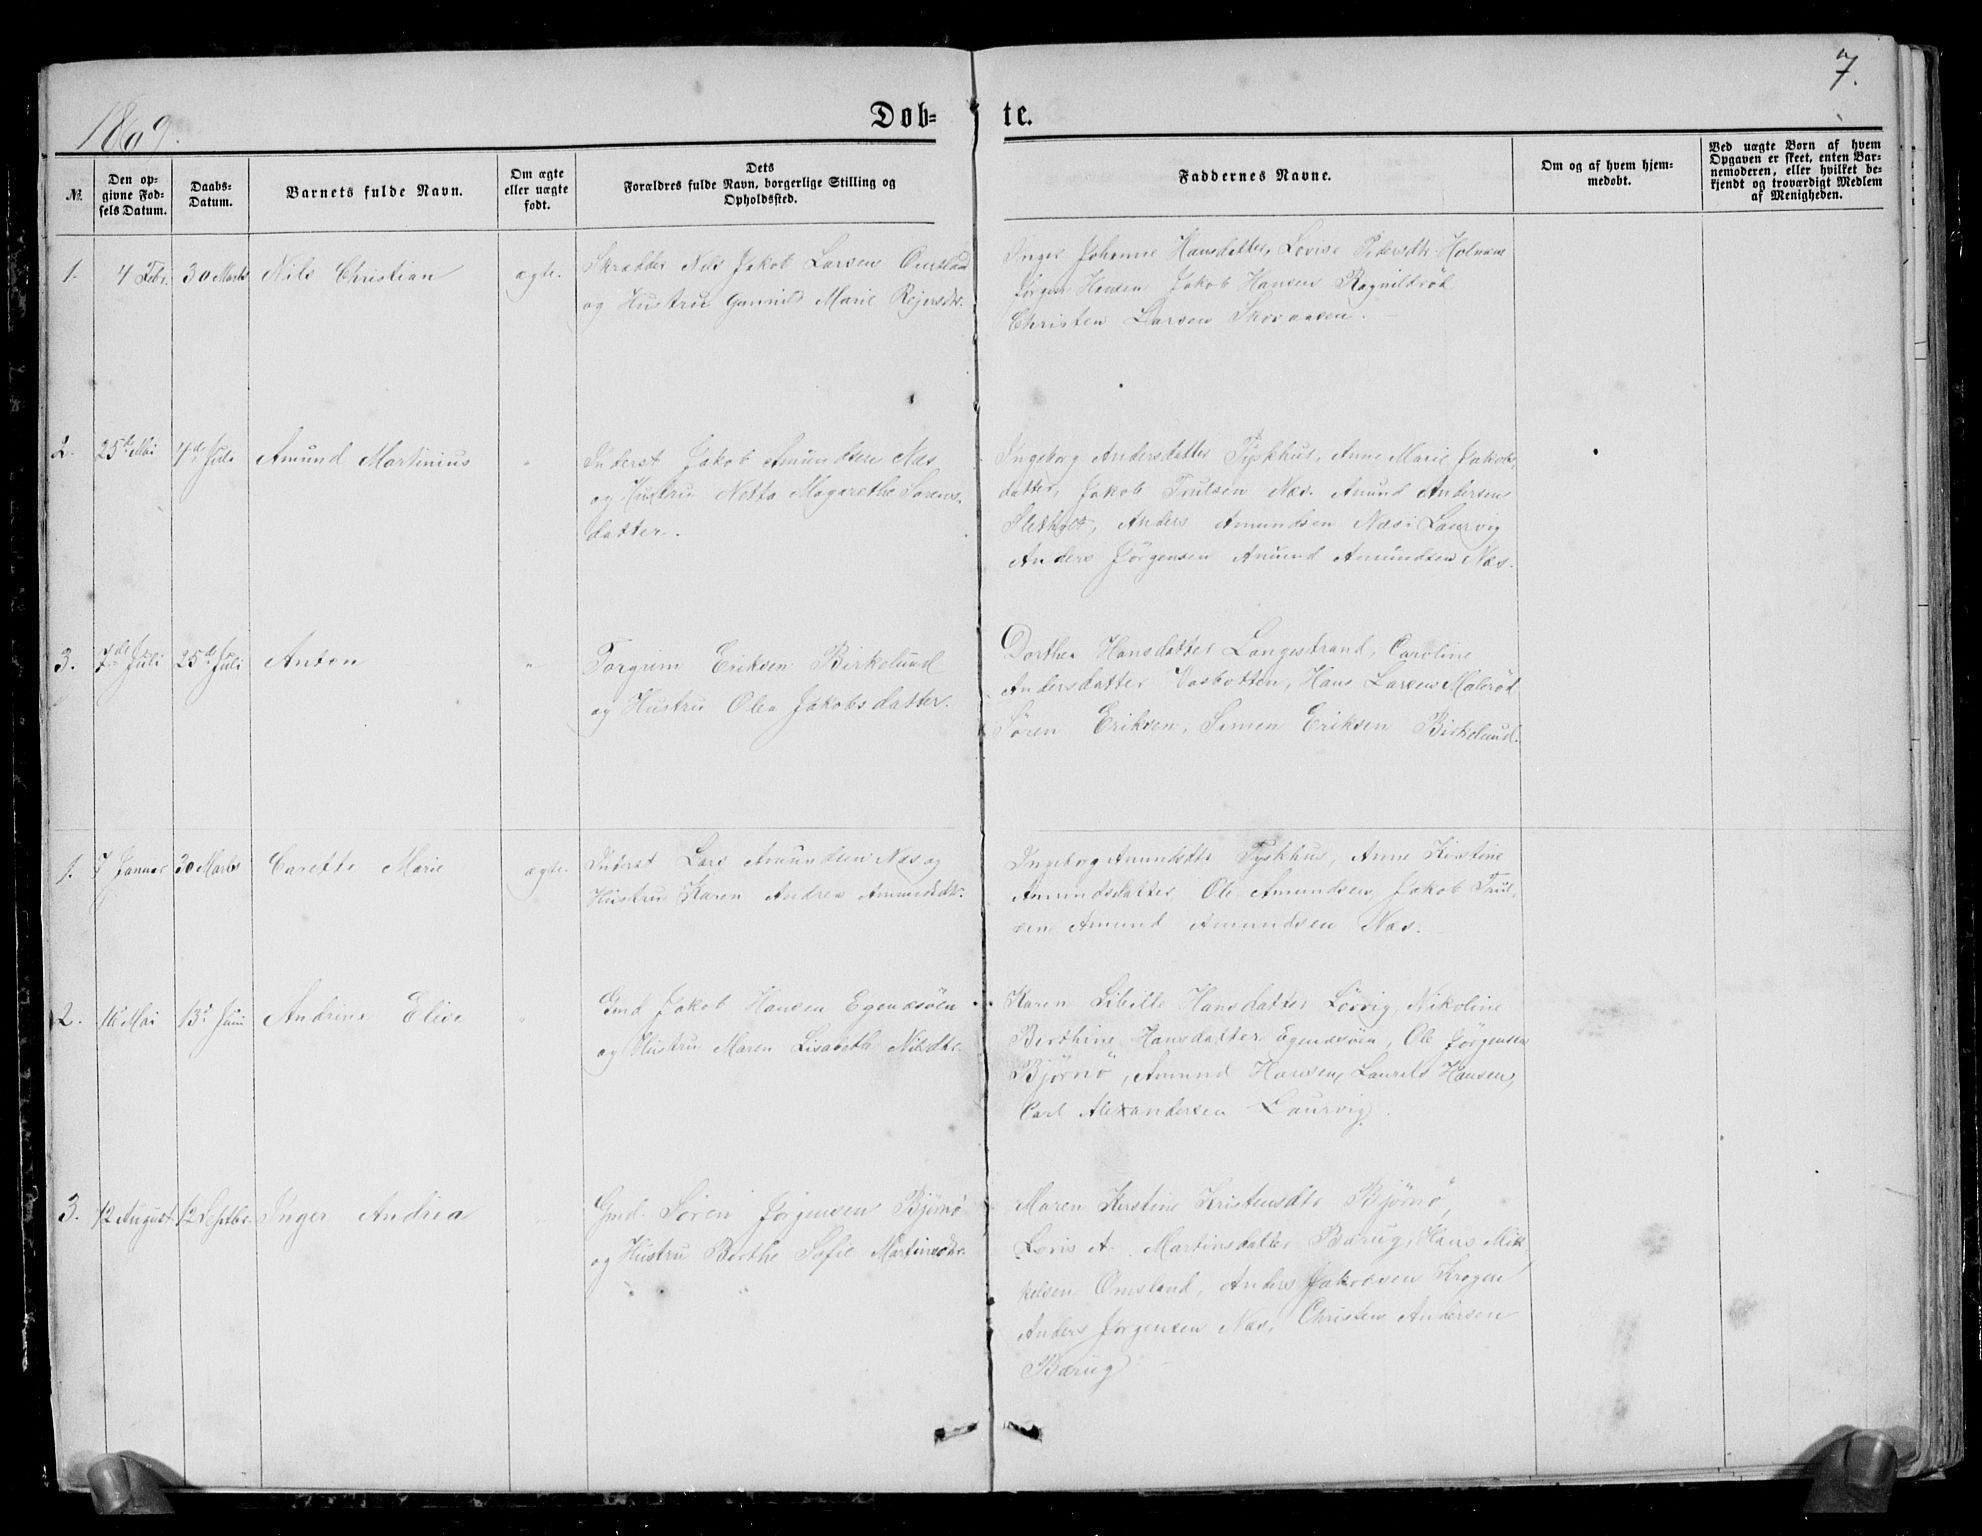 1869.
7.
Døb= te.
№.
Den op-
givne Fød-
sels Datum.
Daabs-
Datum.
Barnets fulde Navn.
Om ægte
eller uægte
født.
Dets
Forældres fulde Navn, borgerlige Stilling og
Opholdssted.
Faddernes Navne.
Om og af hvem hjem-
medøbt.
Ved uægte Børn af hvem
Opgaven er skeet, enten Bar-
nemoderen, eller hvilket be-
kjendt og troværdigt Medlem
af Menigheden.
1. 4 Febr. 30 Marts Nils Christian ægte. Skrædder Nils Jakob Larsen Omsland
og Hustru Gunnild Marie Rejersdtr.
Inger Johanne Hansdatter, Lovise Pedersdtr Holmen
Jørgen Hansen Jakob Hansen Ragnildrød
Christen Larsen Skovaasen.
2. 25de Mai 4de Juli Amund Martinius " Inderst Jakob Amundsen Næs
og Hustru Netta Magarethe Sørens-
datter.
Ingeborg Andersdatter Tyskhus, Anne Marie Jakobs
datter, Jakob Trulsen Næs. Anund Andersen
Sletholt, Anders Amundsen Næs i Laurvig
Anders Jørgensen Anund Amundsen Næs.
3. 7de Juli 25de Juli Anton " Torgrim Eriksen Birkelund
og Hustru Olea Jakobsdatter.
Dorthea Hansdatter Langestrand, Caroline
Andersdatter Vasbotten, Hans Larsen Malerød
Søren Eriksen, Simen Eriksen Birkelund.
1. 7 Januar 30 Marts Carette Marie ægte. Inderst Lars Amundsen Næs og
Hustru Karen Andrea Amundsdtr.
Ingeborg Amundsdtr Tyskhus, Anne Kirstine
Amundsdatter, Ole Amundsen, Jakob Trul-
sen Amund Amundsen Næs.
2. 16 Mai 13de Juni Andrine Elise " Gmd Jakob Hansen Egenæsøen
og Hustru Maren Lisabeth Nilsdtr.
Karen Sibille Hansdatter Løvvig, Nikoline
Berthine Hansdatter Egenæsøen, Ole Jørgensen
Bjørnø, Amund Hansen, Laurits Hansen,
Carl Alexandersen Laurvig.
3. 12 August 12 Septbr. Inger Andrea " Gmd. Søren Jørgensen Bjørnø
og Hustru Berthe Sofie Martinsdtr.
Maren Kirstine Kristensdtr Bjørnø,
Lovis A. Martinsdatter Bærug, Hans Mik
kelsen Omsland, Anders Jakobsen Krogen
Anders Jørgensen Næs, Christen Andersen
Bærug